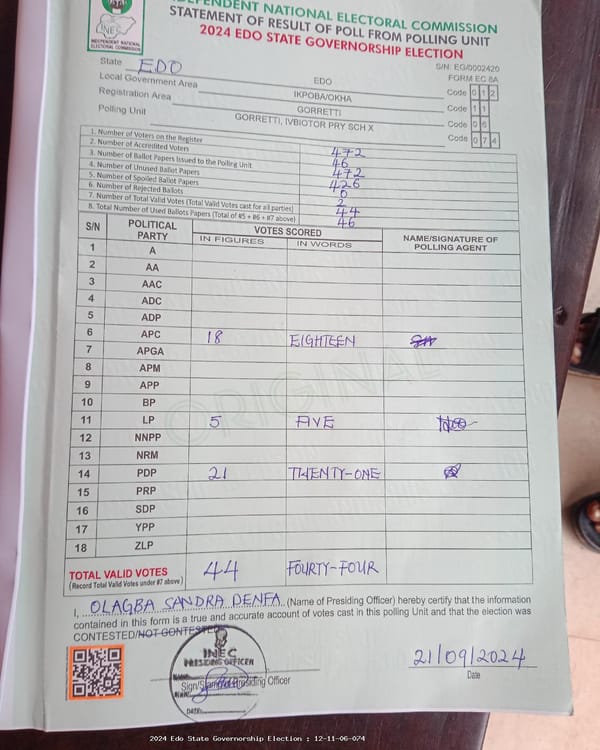 INDEPENDENT NATIONAL ELECTORAL COMMISSION
STATEMENT OF RESULT OF POLL FROM POLLING UNIT
2024 EDO STATE GOVERNORSHIP ELECTION
INEC
INDEPENDENT NATIONAL
ELECTORAL COMMISSION
S/N: EG/0002420
FORM EC 8A
State EDO
Local Government Area EDO
Registration Area IKPOBA/OKHA Code 012
Polling Unit GORRETTI Code 11
GORRETTI, IVBIOTOR PRY SCH X Code 06
Code 074
1. Number of Voters on the Register 472
2. Number of Accredited Voters 46
3. Number of Ballot Papers Issued to the Polling Unit 472
4. Number of Unused Ballot Papers 426
5. Number of Spoiled Ballot Papers 0
6. Number of Rejected Ballots 2
7. Number of Total Valid Votes (Total Valid Votes cast for all parties) 44
8. Total Number of Used Ballots Papers (Total of #5 + #6 + #7 above) 46
S/N POLITICAL PARTY VOTES SCORED NAME/SIGNATURE OF POLLING AGENT
IN FIGURES IN WORDS
1 A
2 AA
3 AAC
4 ADC
5 ADP
6 APC 18 EIGHTEEN
7 APGA
8 APM
9 APP
10 BP
11 LP 5 FIVE
12 NNPP
13 NRM
14 PDP 21 TWENTY-ONE
15 PRP
16 SDP
17 YPP
18 ZLP
ORIGINAL
TOTAL VALID VOTES 44 FOURTY-FOUR
(Record Total Valid Votes under #7 above)
I, OLAGBA SANDRA DENFA (Name of Presiding Officer) hereby certify that the information
contained in this form is a true and accurate account of votes cast in this polling Unit and that the election was
CONTESTED/NOT CONTESTED
INEC
PRESIDING OFFICER
Sign/Stamp of Presiding Officer
DATE:
21/09/2024
Date
2024 Edo State Governorship Election : 12-11-06-074